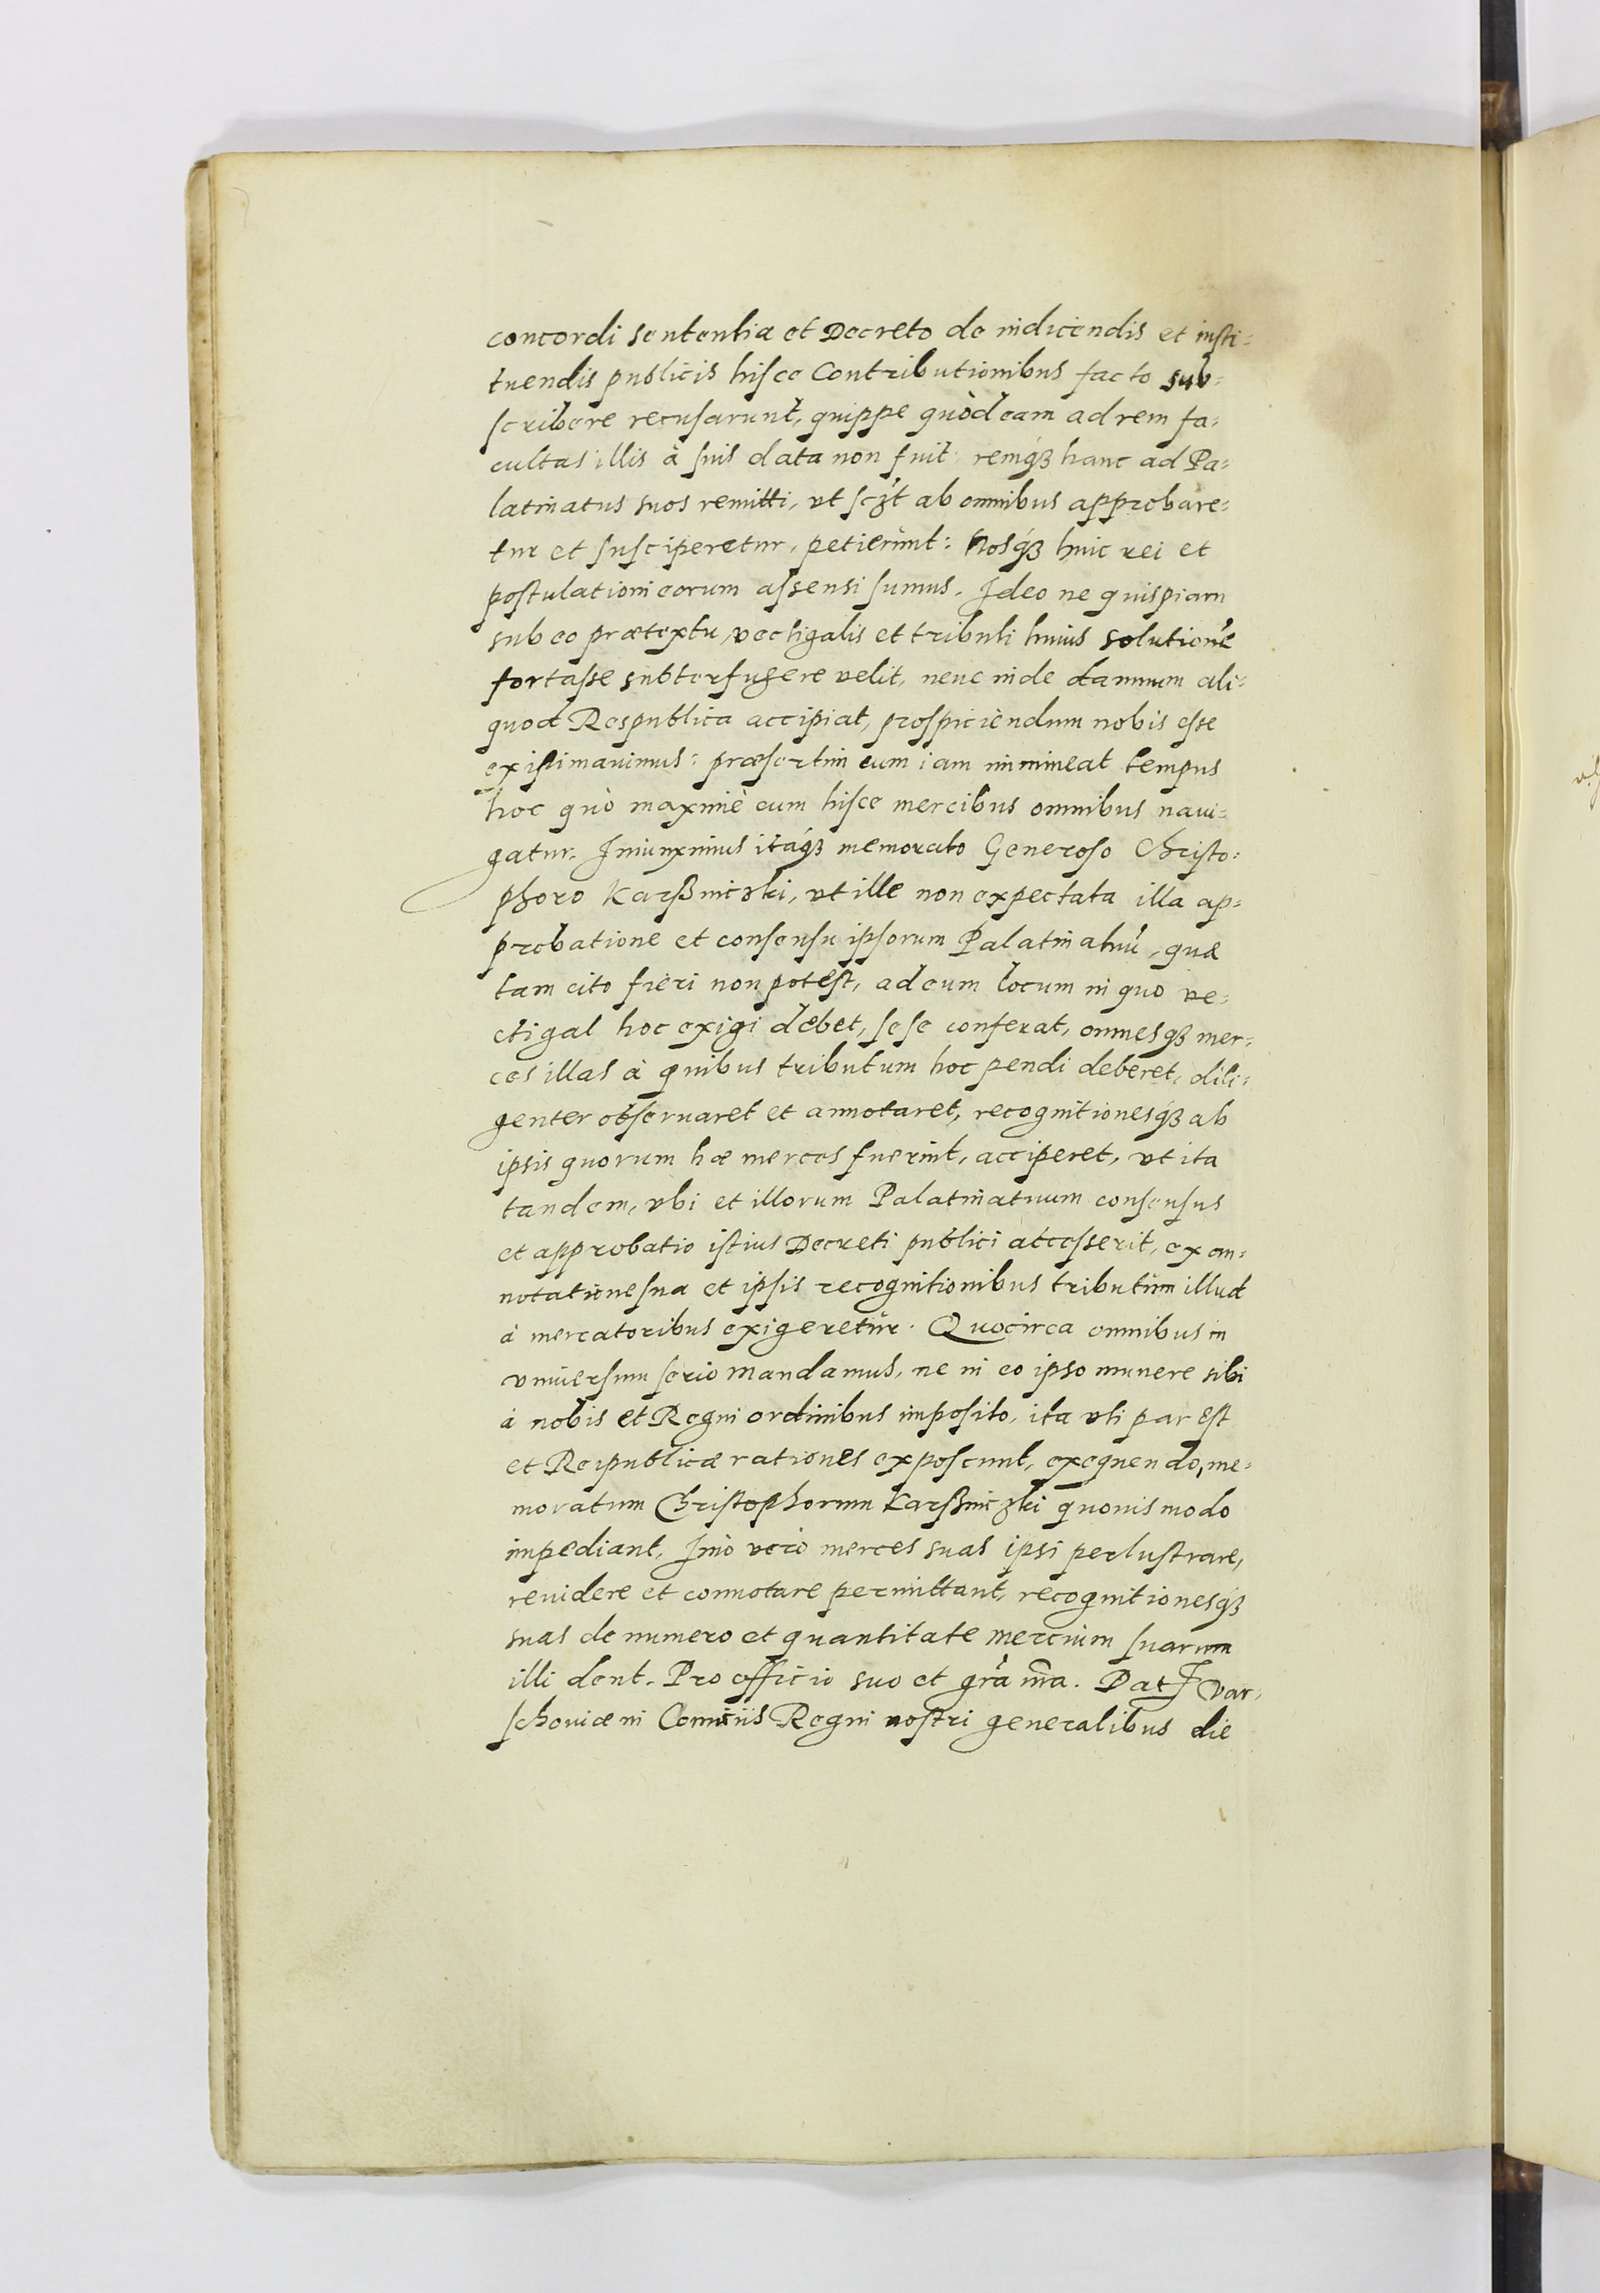 concordi sententia et Decreto de indicendis et insti-
tuendis publicis hisce Contributionibus facto sub-
scribere recusarunt, quippe quòd eam ad rem fa-
cultas illis à suis data non fuit remq́ꝫ hanc ad Pa-
latinatus suos remitti, vt scꝫt ab omnibus approbare-
tur et susciperetur, petierint: Nosq́ꝫ huic rei et
postulationi eorum assensi sumus. Ideo ne quispiam
sub eo prætextu vectigalis et tributi huius solutionẽ
fortasse subterfugere velit, neue inde damnum ali-
quod Respublica accipiat, prospiciendum nobis esse
existimauimus: præsertim cum iam immineat tempus
hoc quò maximè cum hisce mercibus omnibus naui-
gatur. Iniunximus itáqꝫ memorato Generoso Christo-
phoro Karßniczki, vt ille non expectata illa ap-
probatione et consensu ipsorum Palatinatuũ, quæ
tam cito fieri non potest, ad eum locum in quo ve-
ctigal hoc exigi debet, sese conferat, omnesqꝫ mer-
ces illas à quibus tributum hoc pendi deberet, dili-
genter obseruaret et annotaret, recognitionesq́ꝫ ab
ipsis quorum hæ merces fuerint, acciperet, vt ita
tandem, vbi et illorum Palatinatuum consensus
et approbatio istius Decreti publici accesserit, ex an-
notatione sua et ipsis recognitionibus tributum illud
à mercatoribus exigeretur. Quocirca omnibus in
vniuersum serio mandamus, ne in eo ipso munere sibi
à nobis et Regni ordinibus imposito, ita vti par est
et Reipublicæ rationes exposcunt, exequendo, me-
moratum Christophorum Karßniczki quouis modo
impediant. Imò verò merces suas ipsi perlustrare,
reuidere et connotare permittant, recognitionesq́ꝫ
suas de numero et quantitate mercium suarum
illi dent. Pro officio suo et grã nra. Dat Var-
schouiæ in Comitiis Regni nostri generalibus die